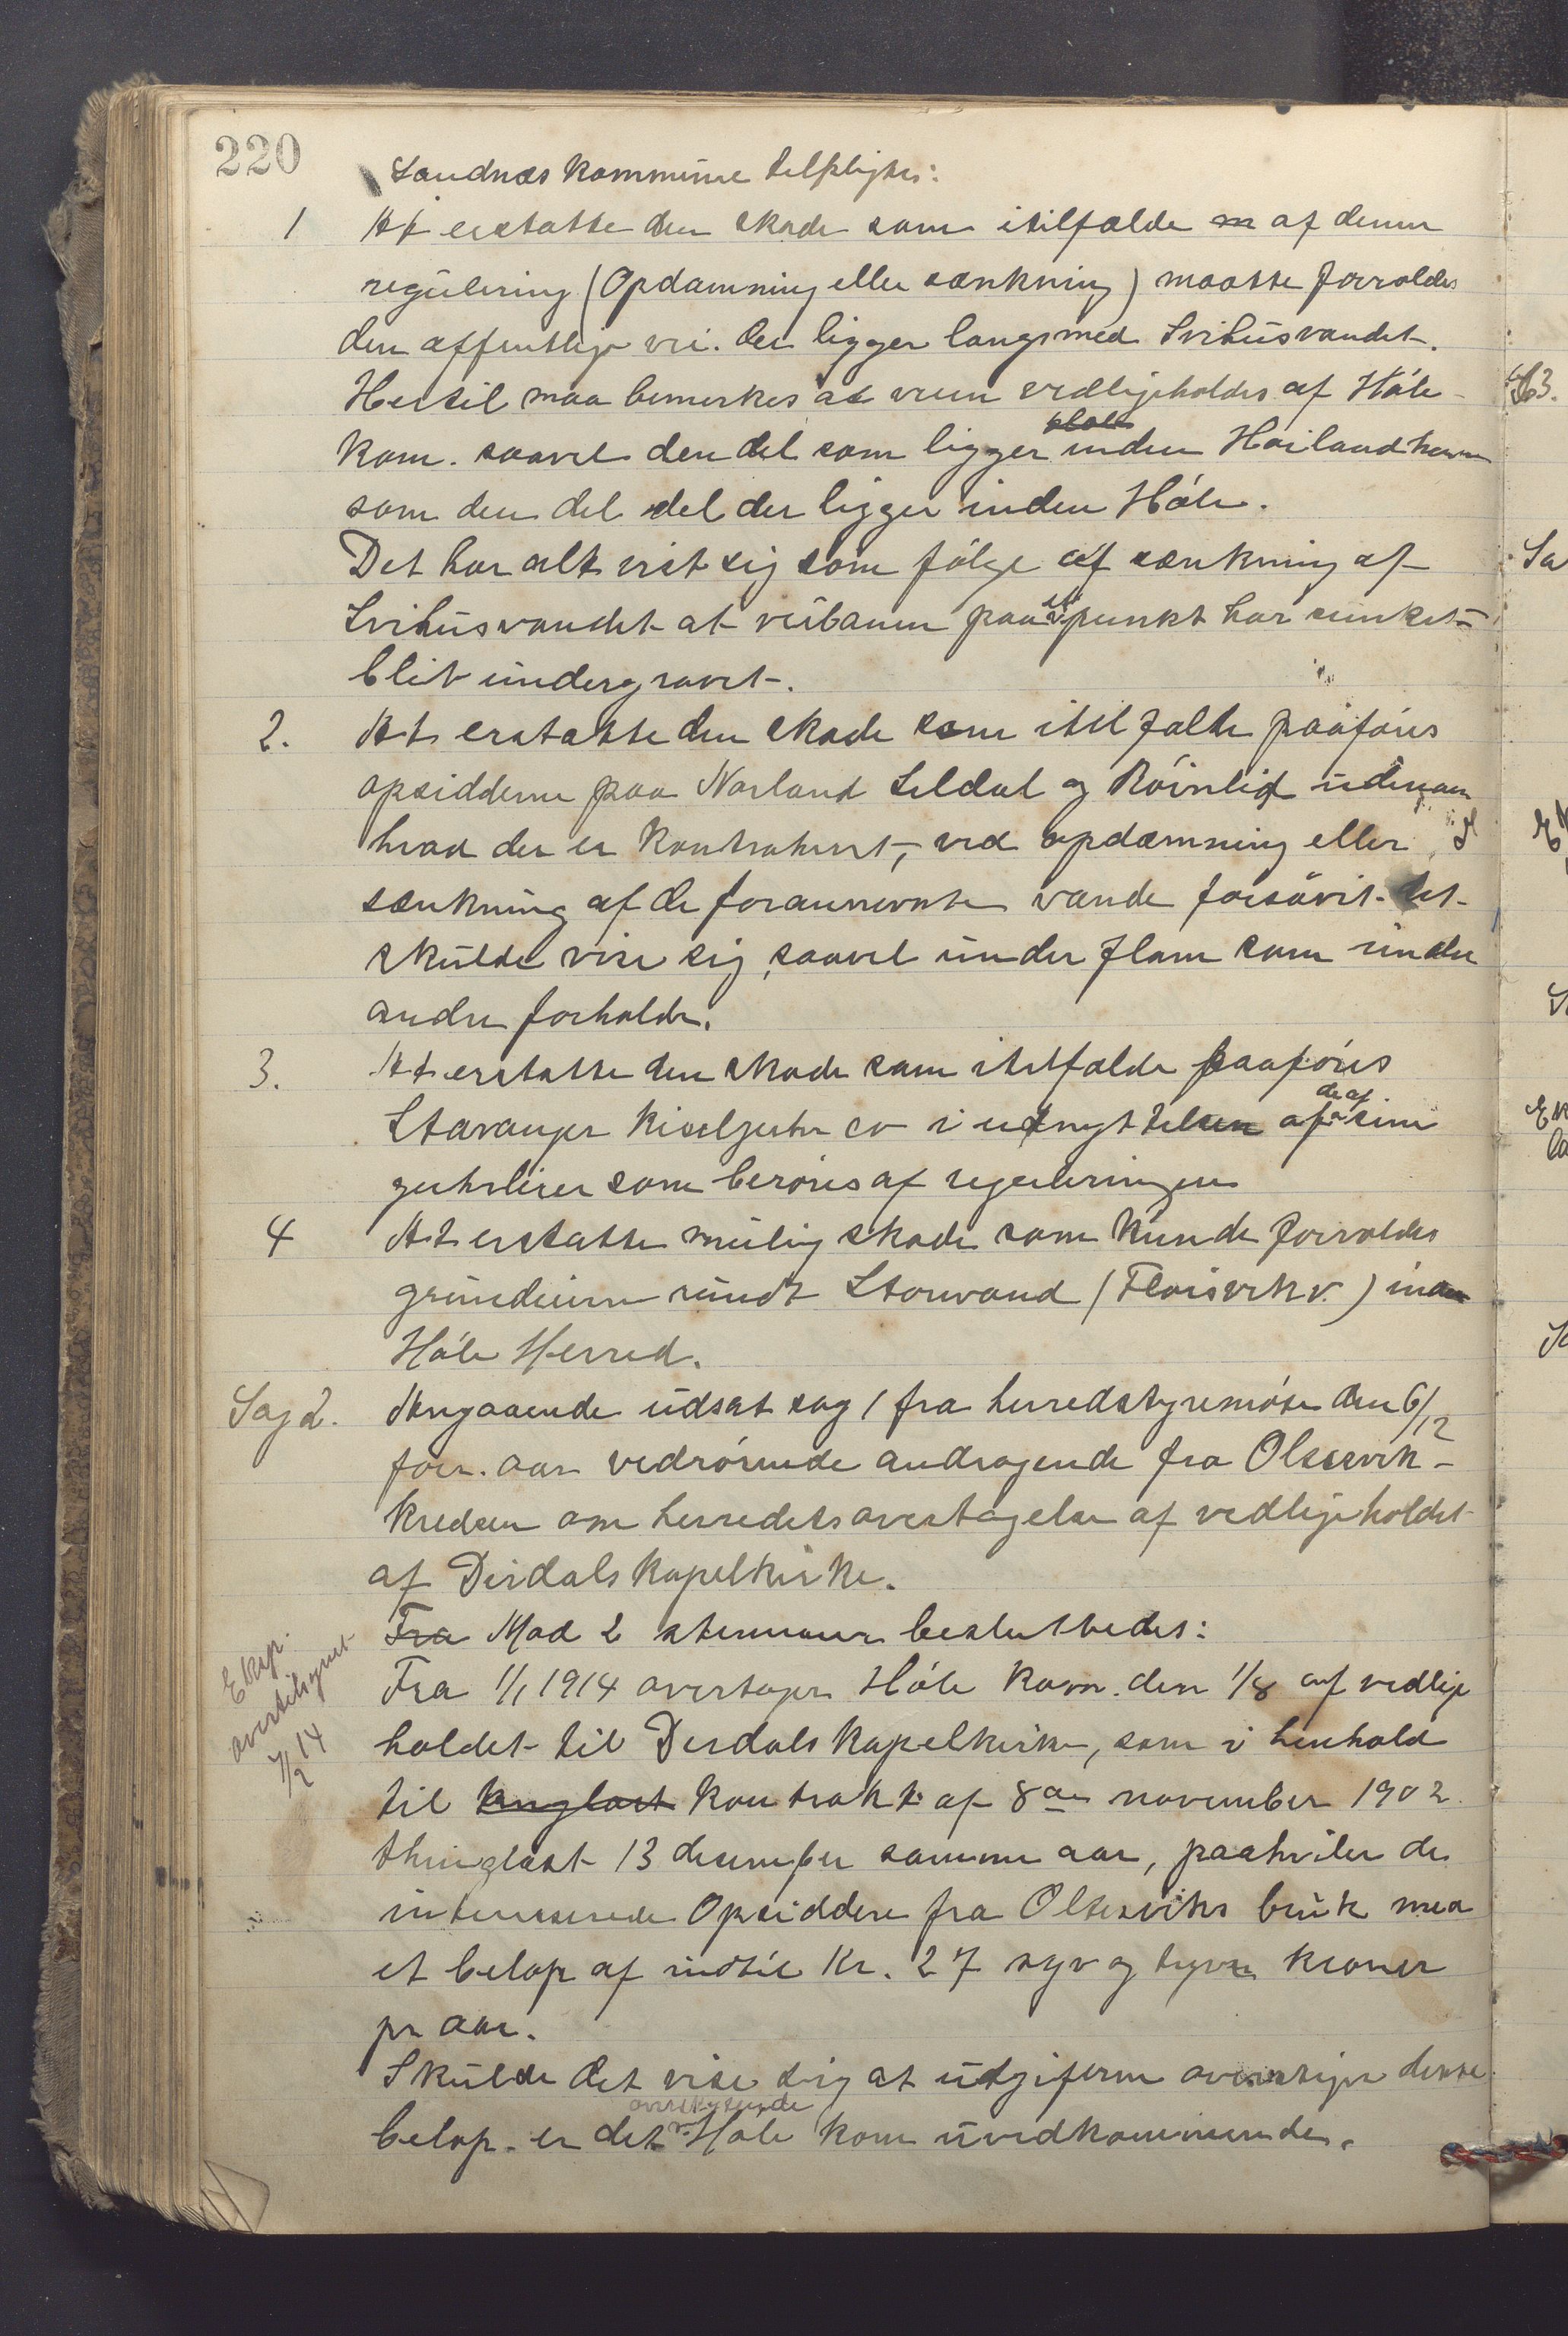 220
Sandnæs kommune tilpligtes:
1 At erstatte den skade som itilfælde m af denne
regulering (Opdamning eller sænkning) maatte forvoldes
den offentlige vei. der ligger langsmed Svihusvandet.
Hertil maa bemerkes at veien vedligeholdes af Höle
kom. saavel den del som ligger inden Höiland kom
som den del del der ligger inden Höle.
Det har alt vist sig som fölge af sænkning af
Svihusvandet at veibanen paa et punkt har sunket
blit undergravet.
2. At erstatte den skade som itilfælde paaføres
opsidderne paa Norland Seldal og Röinlid udenom
hvad der er kontrahert, ved opdæmning eller
sænkning af de forannevnte vande forsåvit det
skulde vise sig, saavel under flom som under
andre forholde.
3. At erstatte den skade som itilfælde paaföres
Stavanger Kiselguhr co i udnyttelsen af de af sine
guhrleier som beröres af reguleringen
4 At erstatte mulig skade som kunde forvoldes
grundeierne rundt Storvand (Floisvikv.) inden
Höle Herred.
Sag 2. Angaaende udsat sag 1 fra herredstyremöte den 6/12
forr. aar vedrörende andragende fra Oltesvik-
kredsen om herredets overtagelse af vedligeholdet
af Dirdals kapelkirke.
Fra Mod 2 stemmer besluttedes:
Eksp.
overtilsynet
7/2 14
Fra 1/1 1914 overtager Höle kom. den 1/8 af vedlige
holdet til Dirdals kapelkirke, som i henhold
til tinglæst kontrakt af 8de november 1902
thinglæst 13 desember samme aar, paahviler de
interesserede Opsiddere fra Oltesviks bruk med
et beløp af indtil Kr. 27 syv og tyve kroner
pr aar.
Skulde det vise sig at udgifterne overstiger dette
beløp. er det overskytende Höle kom uvedkommende.